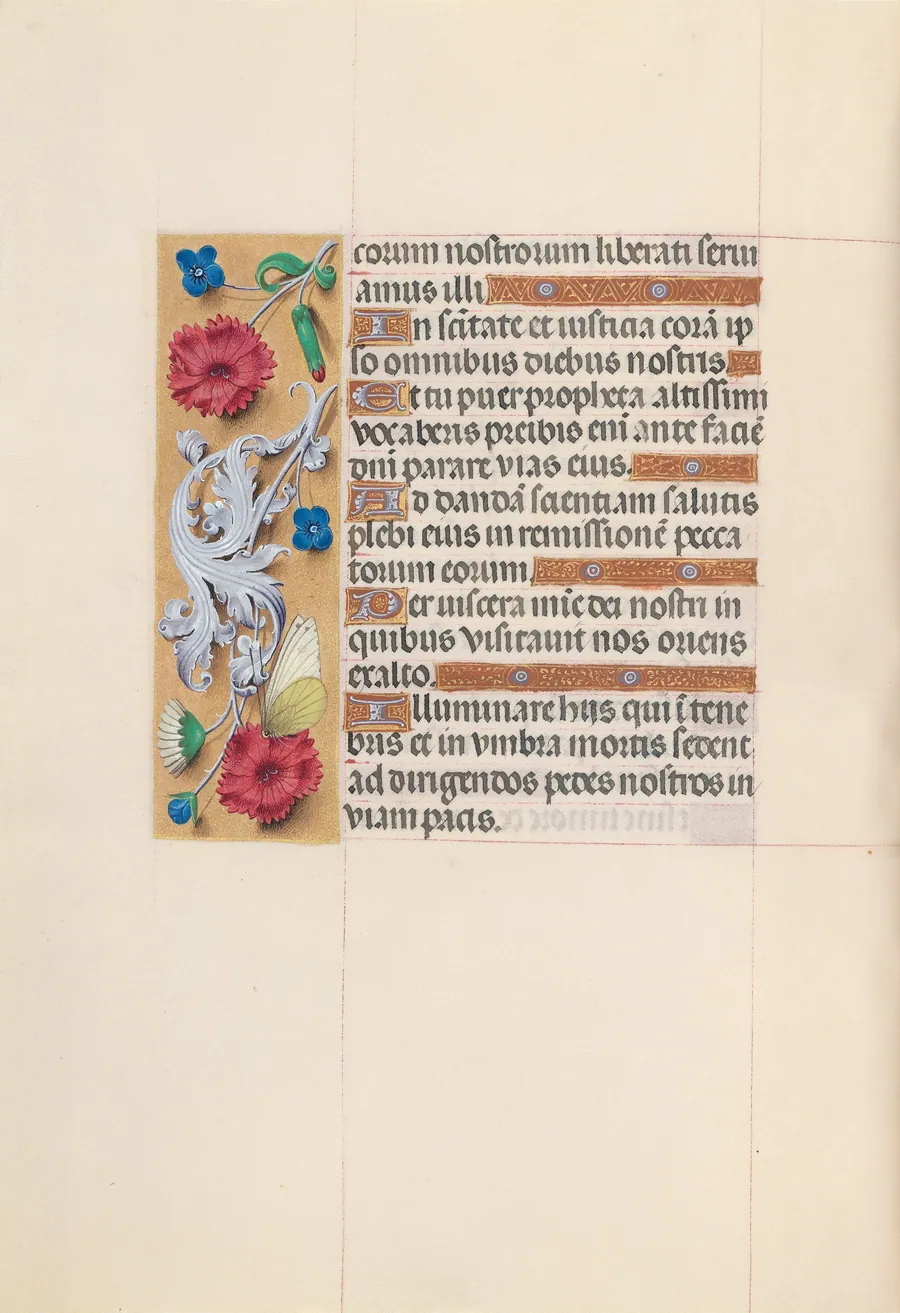 corum nostrorum liberati serui
amus illi
In scītate et iusticia corā ip
so omnibus diebus nostris.
Et tu puer propheta altissimi
vocaberis preibis enī ante faciē
dnī parare vias eius.
Ad dandā scientiam salutis
plebi eius in remissionē pecca
torum eorum.
Per viscera mīe dei nostri in
quibus visitavit nos oriens
exalto.
Illuminare hijs qui ī tene
bris et in vmbra mortis sedent
ad dirigendos pedes nostros in
viam pacis.